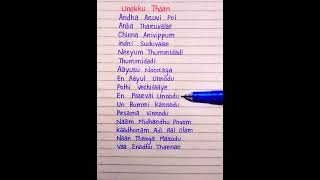 Unakku Thaan
Andha Aruvi Pol
Anba Tharuvalae
Chinna Arivippum
Indri Suduvalae
Neeyum Thummidadi
Thummidadi
Aayusu Nooraga
En Aayul Unnodu
Pathi Vechikaaye
En Paarvai Unnodu
Un Bummi Kannodu
Pesama Vinnodu
Naam Midhandhu Povom
Kaadhoram Adi Aal Olam
Naan Thanga Marodu
Vaa Enadhu Thaenae